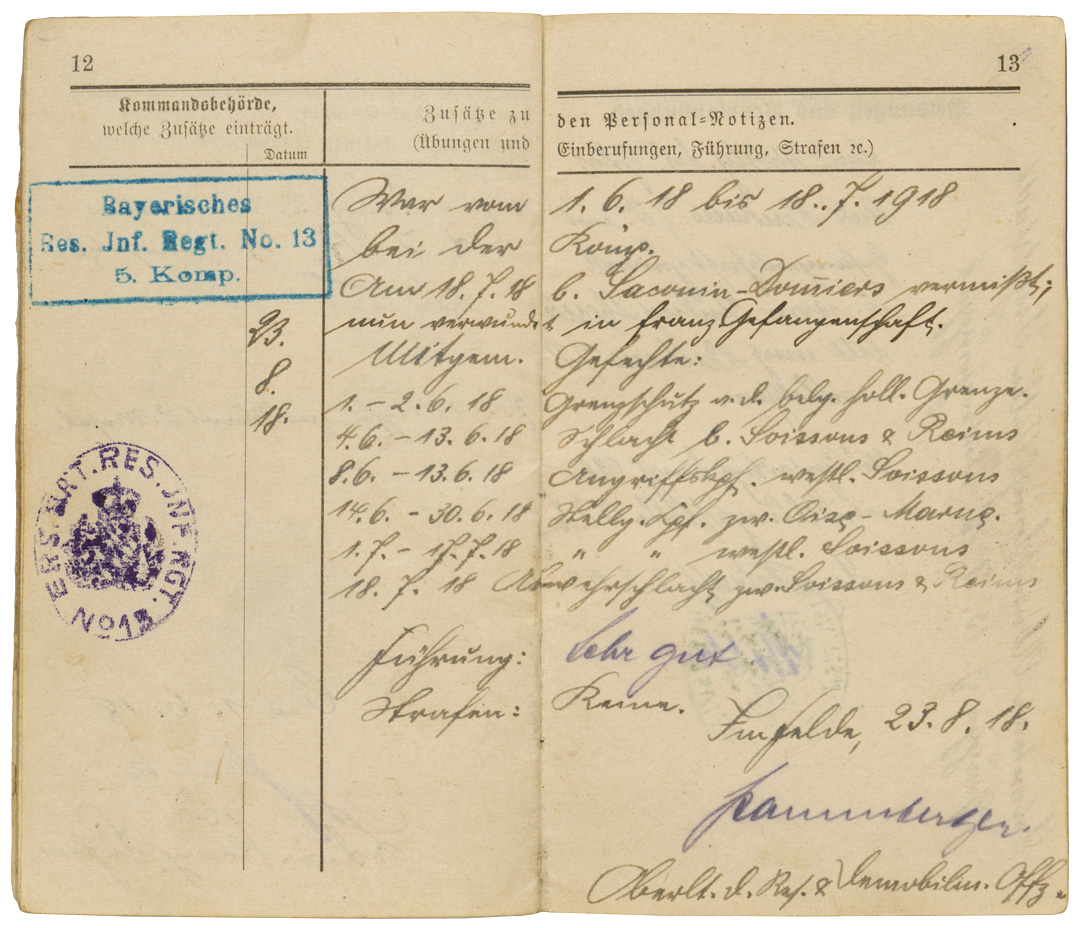 12
13
Kommandobehörde,
welche Zusätze einträgt.
Datum
Zusätze zu den Personal=Notizen.
(Übungen und Einberufungen, Führung, Strafen ꝛc.)
Bayerisches
Res. Jnf. Regt. No. 13
5. Komp.
War vom 1. 6. 18 bis 18. 7. 1918
bei der Komp.
Am 18. 7. 18 b. Saconin-Dom̅iers vermißt;
nun verwundet in franz. Gefangenschaft.
23.
8.
18.
Mitgem. Gefechte:
1. – 2. 6. 18 Grenzschutz a. d. belg. holl. Grenze.
4. 6. – 13. 6. 18 Schlacht b. Soissons & Reims
8. 6. – 13. 6. 18 Angriffskpf. westl. Soissons
14. 6. – 30. 6. 18 Stellg. Kpf. zw. Oise – Marne.
1. 7. – 17. 7. 18 " " westl. Soissons
18. 7. 18 Abwehrschlacht zw. Soissons & Reims
ERS. BAT. RES. JNF. RGT. No 13
Führung: Sehr gut.
Strafen: Keine.
Im Felde, 23. 8. 18.
Oberlt. d. Res. & Demobilm. Offz.